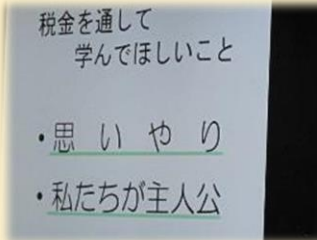 税金を通して
学んでほしいこと
・思いやり
・私たちが主人公